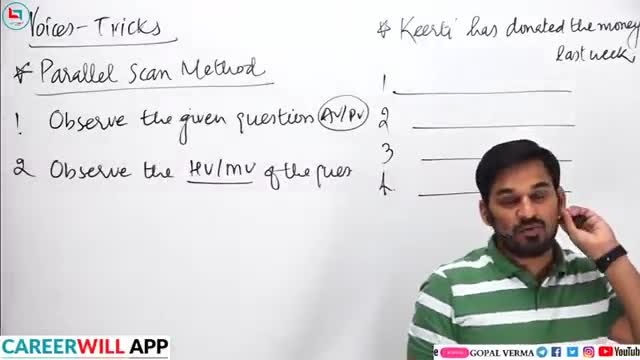 Voices-Tricks
* Parallel Scan Method
1 Observe the given question AV/PV
2 Observe the HV/MV of the ques
* Keerti has donated the money
last week
1
2
3
4
CAREERWILL APP
GOPAL VERMA
YouTube